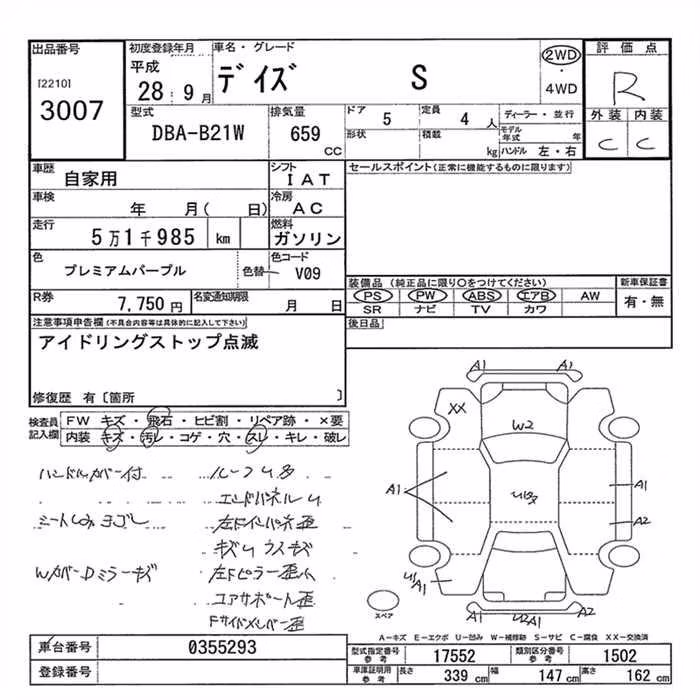 出品番号
[2210]
3007
初度登録年月
平成
28・9月
車名・グレード
デイズ S
2WD
・
4WD
評価点
R
外装 内装
C C
型式
DBA-B21W
排気量
659
CC
ドア
5
定員
4 人
ディーラー・並行
形状
積載
kg
モデル年式
年
ハンドル 左・右
車歴
自家用
シフト
IAT
セールスポイント(正常に機能するものに限ります)
車検
年 月( 日)
冷房
AC
走行
5万1千985 km
燃料
ガソリン
色
プレミアムパープル
色替
色コード
V09
装備品 (純正品に限り〇をつけてください)
新車保証書
PS PW ABS エアB AW
有・無
SR ナビ TV カワ
R券
7,750円
名変通知期限
月 日
後日品
注意事項申告欄(不具合内容等は具体的に記入して下さい)
アイドリングストップ点滅
修復歴 有〔箇所 〕
検査員
記入欄
FW キズ・飛石・ヒビ割・リペア跡・×要
内装 キズ・汚レ・コゲ・穴・スレ・キレ・破レ
ハンドルカバー付
ルーフU多
エンドパネルU
シートしみヨゴレ
キズU ウスキズ
WカバーDミラーキズ
左Fピラー歪
コアサポート歪
Fサイドメンバー歪
A1 A1
XX
W2
A1
A1
A2
U1
A1
A1 U2A1 A1
スペア
A-キズ E-エクボ U-凹み W-補修跡 S-サビ C-腐食 XX-交換済
車台番号
0355293
登録番号
型式指定番号
参考
17552
類別区分番号
参考
1502
車庫証明用
参考
長さ
339 cm
幅
147 cm
高さ
162 cm